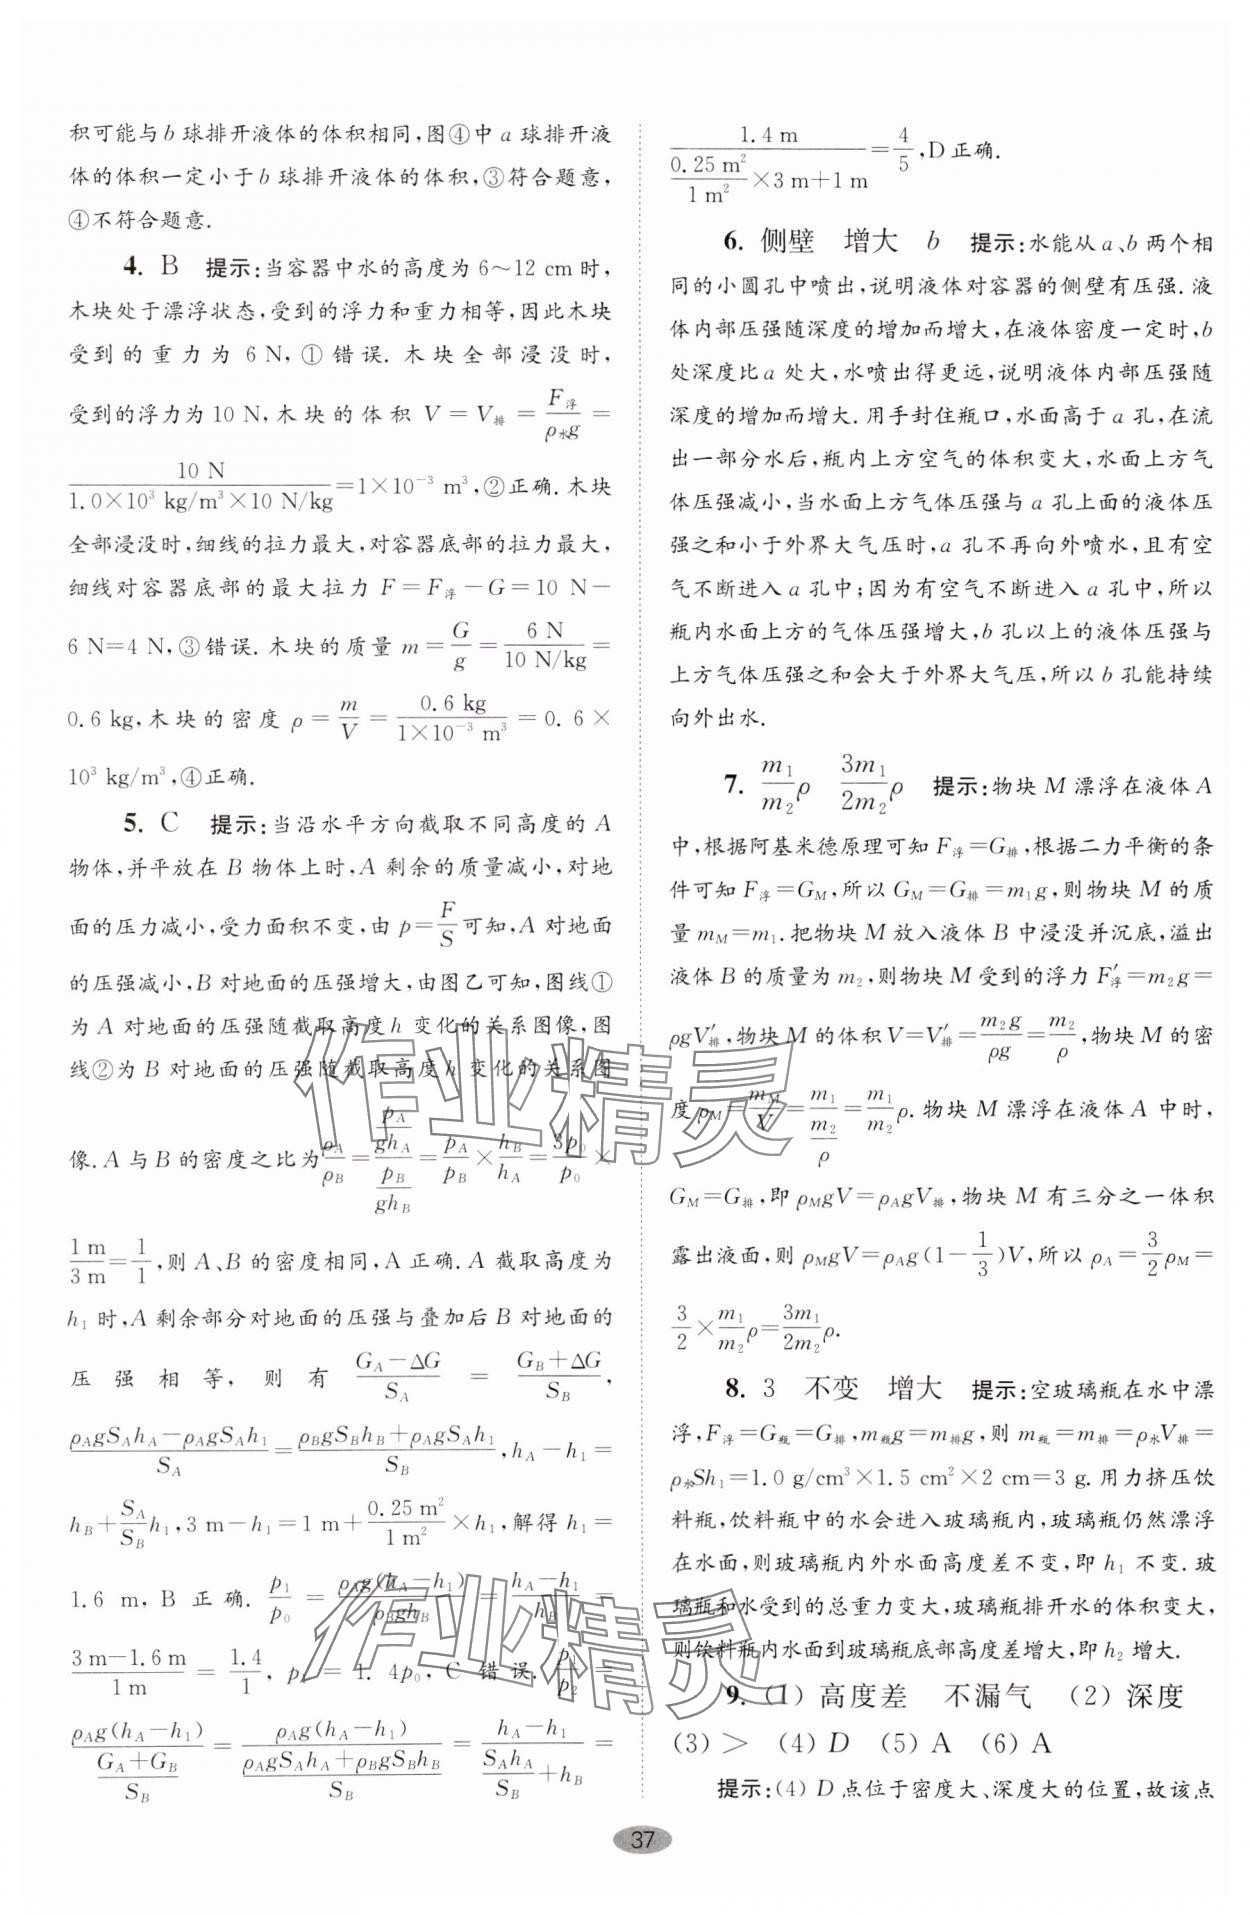 积可能与 b 球排开液体的体积相同,图④中 a 球排开液
体的体积一定小于 b 球排开液体的体积,③符合题意,
④不符合题意.
4. B 提示:当容器中水的高度为 6～12 cm 时,
木块处于漂浮状态,受到的浮力和重力相等,因此木块
受到的重力为 6 N,①错误.木块全部浸没时,
受到的浮力为 10 N,木块的体积 V=V排=F浮/(ρ水g)=
10 N/(1.0×10³ kg/m³×10 N/kg)=1×10⁻³ m³,②正确.木块
全部浸没时,细线的拉力最大,对容器底部的拉力最大,
细线对容器底部的最大拉力 F=F浮-G=10 N-
6 N=4 N,③错误.木块的质量 m=G/g=6 N/(10 N/kg)=
0.6 kg,木块的密度 ρ=m/V=0.6 kg/(1×10⁻³ m³)=0.6×
10³ kg/m³,④正确.
5. C 提示:当沿水平方向截取不同高度的 A
物体,并平放在 B 物体上时,A 剩余的质量减小,对地
面的压力减小,受力面积不变,由 p=F/S可知,A 对地面
的压强减小,B 对地面的压强增大,由图乙可知,图线①
为 A 对地面的压强随截取高度 h 变化的关系图像,图
线②为 B 对地面的压强随截取高度 h 变化的关系图
像.A 与 B 的密度之比为 ρA/ρB=(pA/(ghA))/(pB/(ghB))=pA/pB×hB/hA=3p₀/p₀×
1 m/3 m=1/1,则 A、B 的密度相同,A 正确.A 截取高度为
h₁ 时,A 剩余部分对地面的压强与叠加后 B 对地面的
压强相等,则有 (GA-ΔG)/SA=(GB+ΔG)/SB,
(ρAgSAhA-ρAgSAh₁)/SA=(ρBgSBhB+ρAgSAh₁)/SB,hA-h₁=
hB+SA/SB h₁,3 m-h₁=1 m+0.25 m²/1 m²×h₁,解得 h₁=
1.6 m,B 正确.p₁/p₀=ρAg(hA-h₁)/(ρBghB)=(hA-h₁)/hB=
(3 m-1.6 m)/1 m=1.4/1,p₁=1.4p₀,C 错误.p₁/p₂=
ρAg(hA-h₁)/((GA+GB)/SB)=ρAg(hA-h₁)/((ρAgSAhA+ρBgSBhB)/SB)=(hA-h₁)/(SAhA/SB+hB)=
1.4 m/(0.25 m²/1 m²×3 m+1 m)=4/5,D 正确.
6. 侧壁 增大 b 提示:水能从 a、b 两个相
同的小圆孔中喷出,说明液体对容器的侧壁有压强.液
体内部压强随深度的增加而增大,在液体密度一定时,b
处深度比 a 处大,水喷出得更远,说明液体内部压强随
深度的增加而增大.用手封住瓶口,水面高于 a 孔,在流
出一部分水后,瓶内上方空气的体积变大,水面上方气
体压强减小,当水面上方气体压强与 a 孔上面的液体压
强之和小于外界大气压时,a 孔不再向外喷水,且有空
气不断进入 a 孔中;因为有空气不断进入 a 孔中,所以
瓶内水面上方的气体压强增大,b 孔以上的液体压强与
上方气体压强之和会大于外界大气压,所以 b 孔能持续
向外出水.
7. m₁/m₂ρ 3m₁/2m₂ρ 提示:物块 M 漂浮在液体 A
中,根据阿基米德原理可知 F浮=G排,根据二力平衡的条
件可知 F浮=GM,所以 GM=G排=m₁g,则物块 M 的质
量 mM=m₁.把物块 M 放入液体 B 中浸没并沉底,溢出
液体 B 的质量为 m₂,则物块 M 受到的浮力 F′浮=m₂g=
ρgV′排,物块 M 的体积 V=V′排=m₂g/ρg=m₂/ρ,物块 M 的密
度 ρM=mM/V=m₁/(m₂/ρ)=m₁/m₂ρ.物块 M 漂浮在液体 A 中时,
GM=G排,即 ρMgV=ρAgV排,物块 M 有三分之一体积
露出液面,则 ρMgV=ρAg(1-1/3)V,所以 ρA=3/2ρM=
3/2×m₁/m₂ρ=3m₁/2m₂ρ.
8. 3 不变 增大 提示:空玻璃瓶在水中漂
浮,F浮=G瓶=G排,m瓶g=m排g,则 m瓶=m排=ρ水V排=
ρ水Sh₁=1.0 g/cm³×1.5 cm²×2 cm=3 g.用力挤压饮
料瓶,饮料瓶中的水会进入玻璃瓶内,玻璃瓶仍然漂浮
在水面,则玻璃瓶内外水面高度差不变,即 h₁ 不变.玻
璃瓶和水受到的总重力变大,玻璃瓶排开水的体积变大,
则饮料瓶内水面到玻璃瓶底部高度差增大,即 h₂ 增大.
9. (1) 高度差 不漏气 (2) 深度
(3) > (4) D (5) A (6) A
提示:(4) D 点位于密度大、深度大的位置,故该点
37
作业精灵
作业精灵